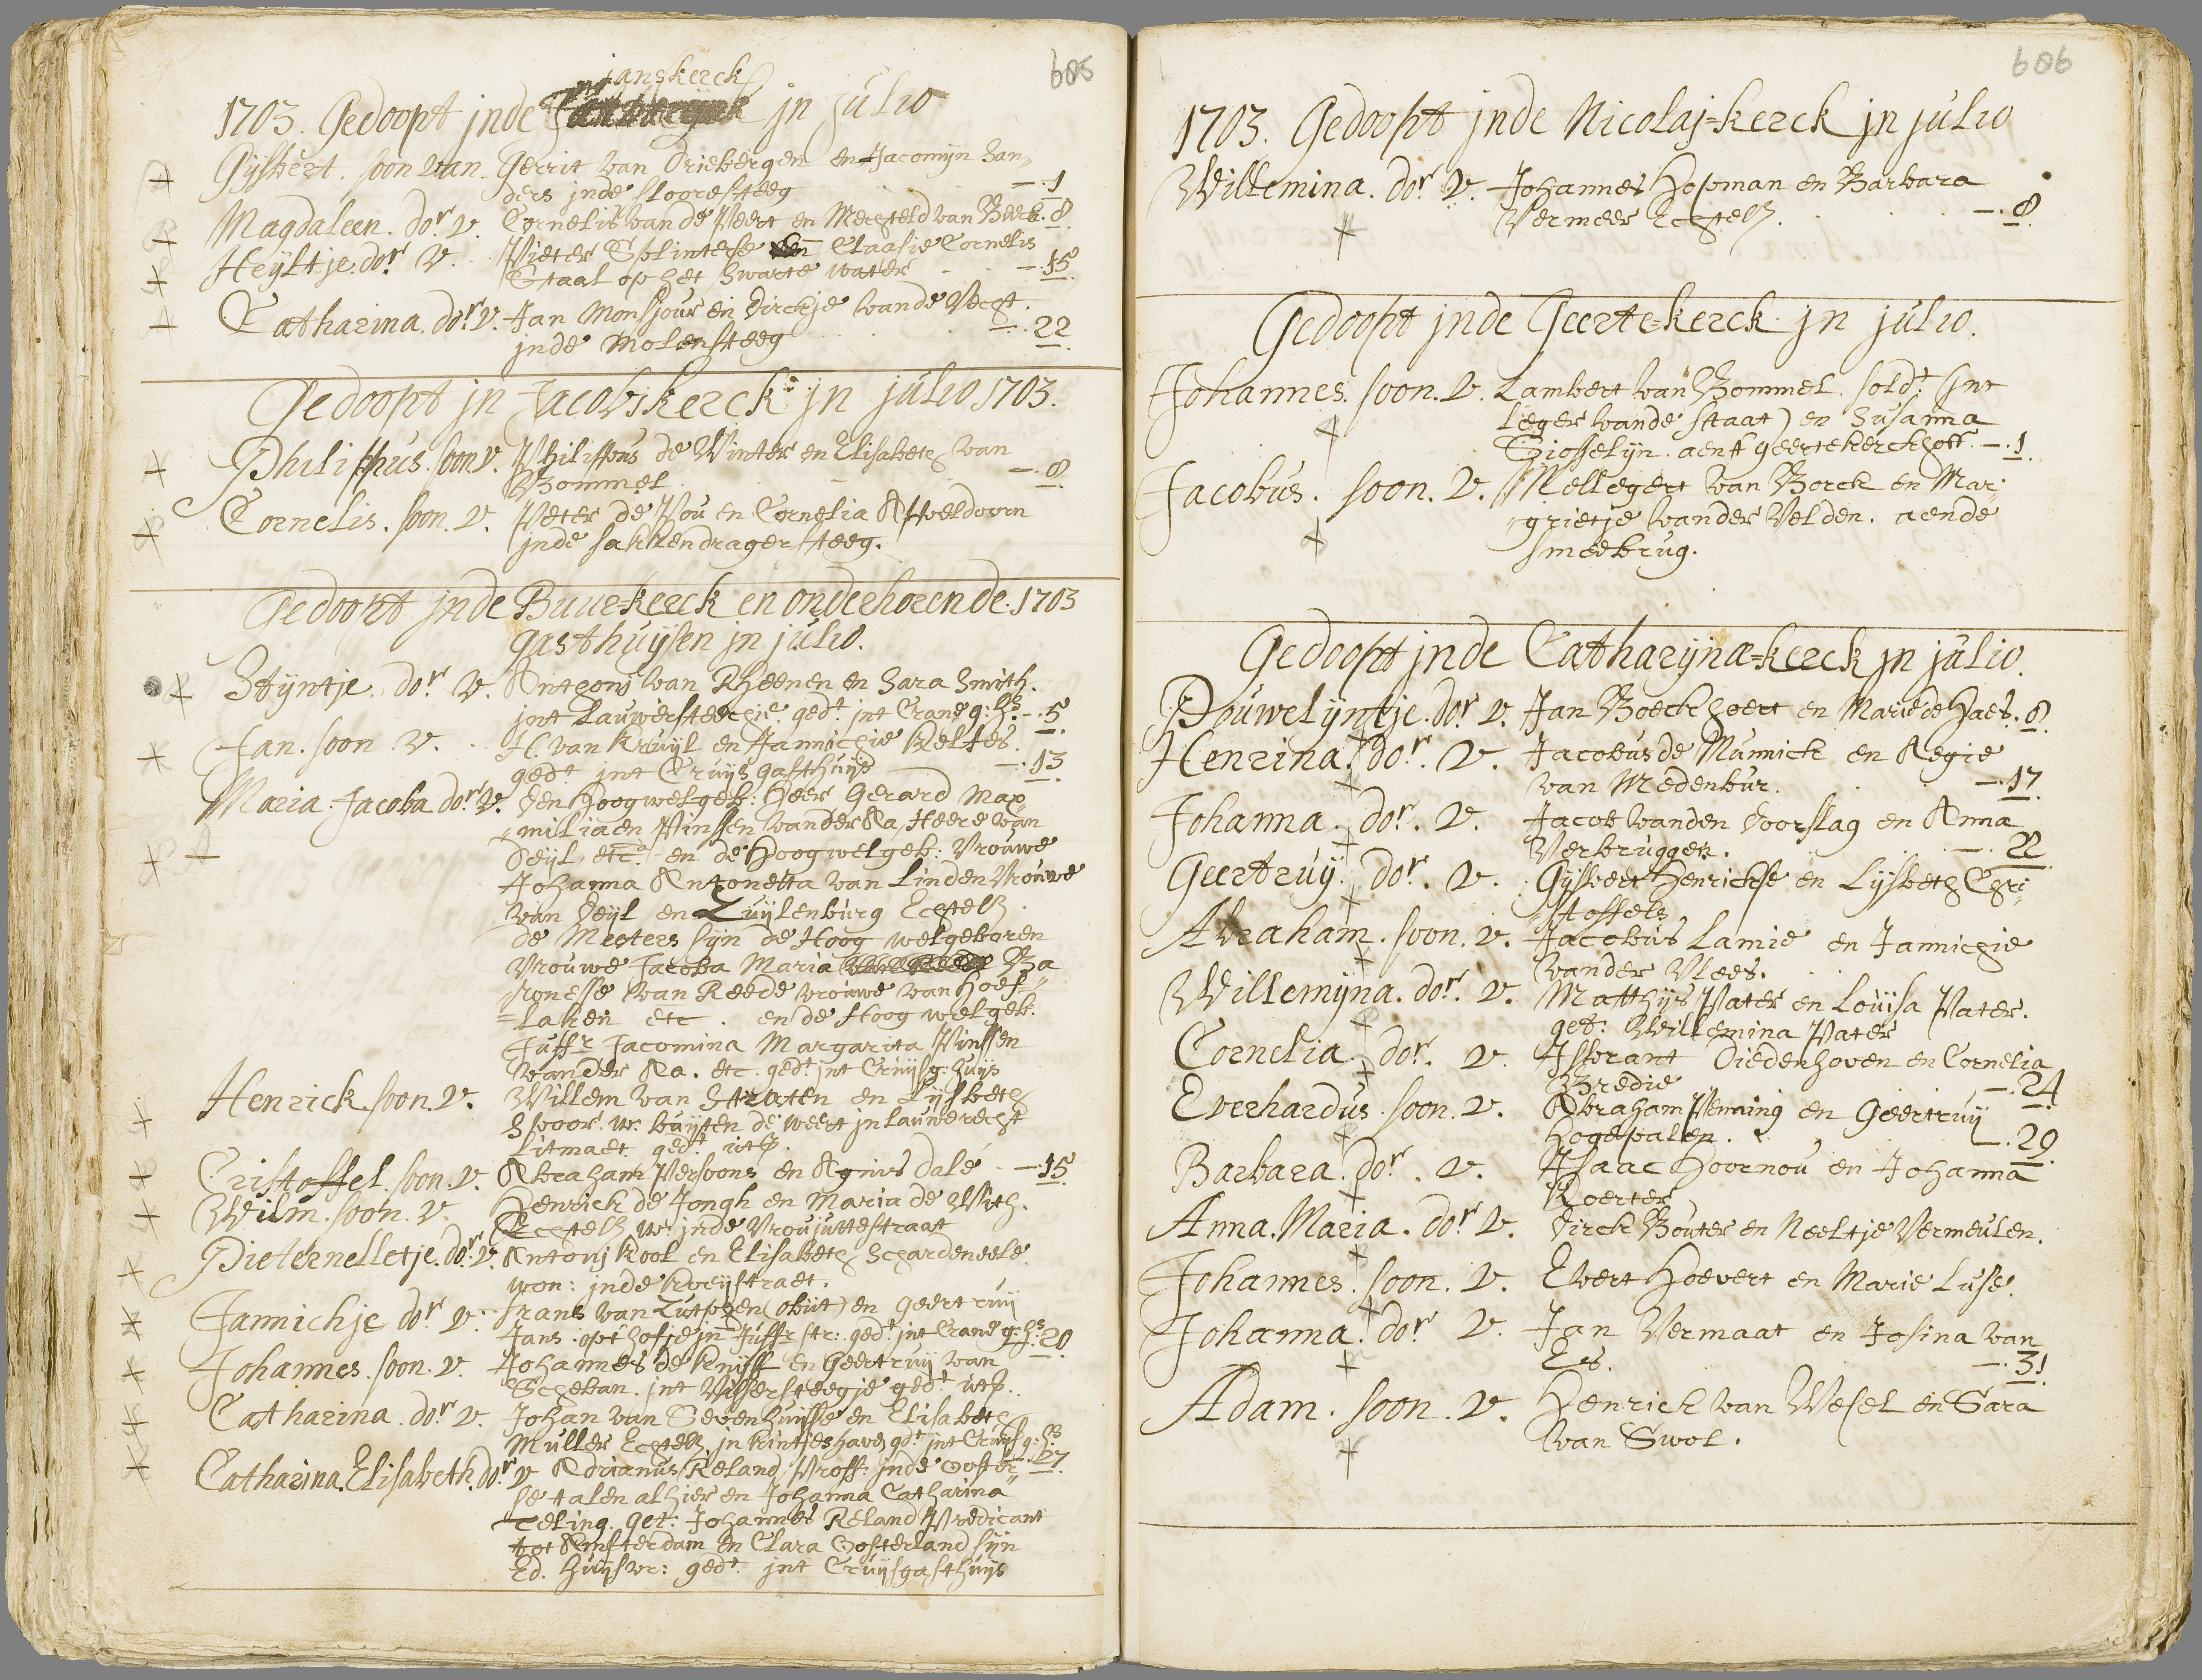 605
janskerck
1703. Gedoopt jnde jn julio
Gijsbert. soon van. Gerrit van Driebergen en Jacomijn San„
ders jnde sloorsteeg —.1
Magdaleen. dor. v. Cornelis van de Peert en Mergteld van Beek. 8.
Heijltje. dor v. Pieter Splinterse en Claasie Cornelis
Staal op het Swarte water —.15
Catharina. dor. v. Jan Monsjour en Dirckje vande Vecht.
jnde Molensteeg —.22
Gedoopt jn Jacobskerck jn julio 1703.
Philippus. soon v. Philippus de Winter en Elisabeth van
Bommel —.8.
Cornelis. soon. v. Peter de Pou en Cornelia Apoeldoorn
jnde sakkendragersteeg.
Gedoopt jnde Buur-kerck en onderhorende. 1703
gasthuijsen jn julio.
Stijntje. dor v. Anthoni van Rheenen en Sara Smith.
jnt Lauwersteechie. gedt. jnt Crane g: hs. —.5
Jan. soon v. H. van Kruijl en Jannichie Keltes.
gedt jnt Cruijs gasthuijs —.13
Maria. Jacoba dor v. Den Hoogwelgeb: Heer Gerard Max„
„miliaen Pinssen vander Aa, Heere van
Deijl, etc.a en de Hoogwelgeb: Vrouwe
Johanna Antonetta van Linden Vrouwe
van Deijl en Zuijlenburg Echtel.
de Meeters sijn de Hoog welgeboren
Vrouwe Jacoba Maria Ba
„ronesse van Reede vrouwe van Hoef„
„laken etc. en de Hoog welgeb.
Juffr Jacomina Margarita Pinssen
vander Aa. etc. gedt jnt Cruijsg: huijs
Henrick soon. v. Willem van Straten en Lijsbeth
Spoor. w. buijten de weert jn Lauwerecht
Litmaet gedt uts.
Cristoffel. soon. v. Abraham Persoons en Agnies Dalé —.15
Wilm. soon. v. Henrick de Jongh en Maria de With.
Echtel w. jnde Vroujuttestraat
Pieternelletje. dor. v. Antonij Kool en Elisabeth Schardeneele.
won: jnde Kroijstraet.
Jannichje dor v. Frans van Zutphen (obijt) en Geertruij
Jans. opt hofje jn Juffr str: gedt jnt Crane g: hs. 20
Johannes. soon. v. Johannes de Knijff en Geertruij van
Scheban. jnt Vissersteegje gedt uts.
Catharina. dor v. Johan van Sevenhuijsse en Elisabeth
Muller Echtel. jn Kintjeshaven gdt jnt Cruijsg: hs
Catharina. Elisabeth. dor v Adrianus Reland, Proff: jnde ooster 27.
se talen alhier en Johanna Catharina
Teeling. get: Johannes Reland Predicant
tot Amsterdam en Clara Oosterland sijn
Ed. huijsvr: gedt. jnt Cruijsgasthuijs
606
1703. Gedoopt jnde Nicolaj-kerck jn julio
Willemina. dor. v. Johannes Hopman en Barbara
Vermeer Echtel. —.8
Gedoopt jnde Geerte-kerck jn julio.
Johannes. soon. v. Lambert van Bommel. soldt. (int
Leger vande staat) en Susanna
Giosselijn. aent geertekerckhoff. —.1
Jacobus. soon. v. Mellegert van Borck en Mar„
„grietje vander Velden. aende
smeebrug.
Gedoopt jnde Catharijna-kerck jn julio.
Pouwelijntje. dor v. Jan Boeckhoert en Marie de Haes. 8
Henrina. dor. v. Jacobus de Munnick en Aegie
van Medenbur. —.17
Johanna. dor. v. Jacob vanden Doorslag en Anna
Verbruggen. —.22
Geertruij. dor. v. Gijsbert Henrickse en Lijsbeth Chri„
„stoffels
Abraham. soon. v. Jacobus Lamie en Jannichie
vander Vlees.
Willemijna. dor. v. Matthijs Pater en Louijsa Pater.
get: Willemina Pater
Cornelia. dor. v. Isbrant Diedenhoven en Cornelia
Bredie —.24
Everhardus. soon. v. Abraham Penning en Geertruij
Hogepalen. —.29
Barbara. dor. v. Isaac Hoornou en Johanna
Koerter
Anna. Maria. dor v. Dirck Bouter en Neeltje Vermeulen.
Johannes. soon. v. Evert Hoevert en Marie Luse.
Johanna. dor v. Jan Vermaat en Josina van
Es. —.31
Adam. soon. v. Henrick van Wesel en Sara
van Swol.